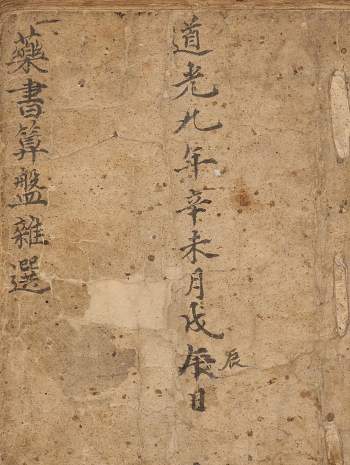 道光九年辛未月戊辰日
辰
藥書算盤雜選